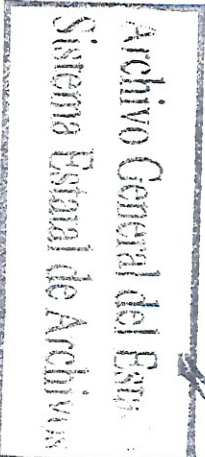 Archivo General del Esta
Sistema Estatal de Archivos